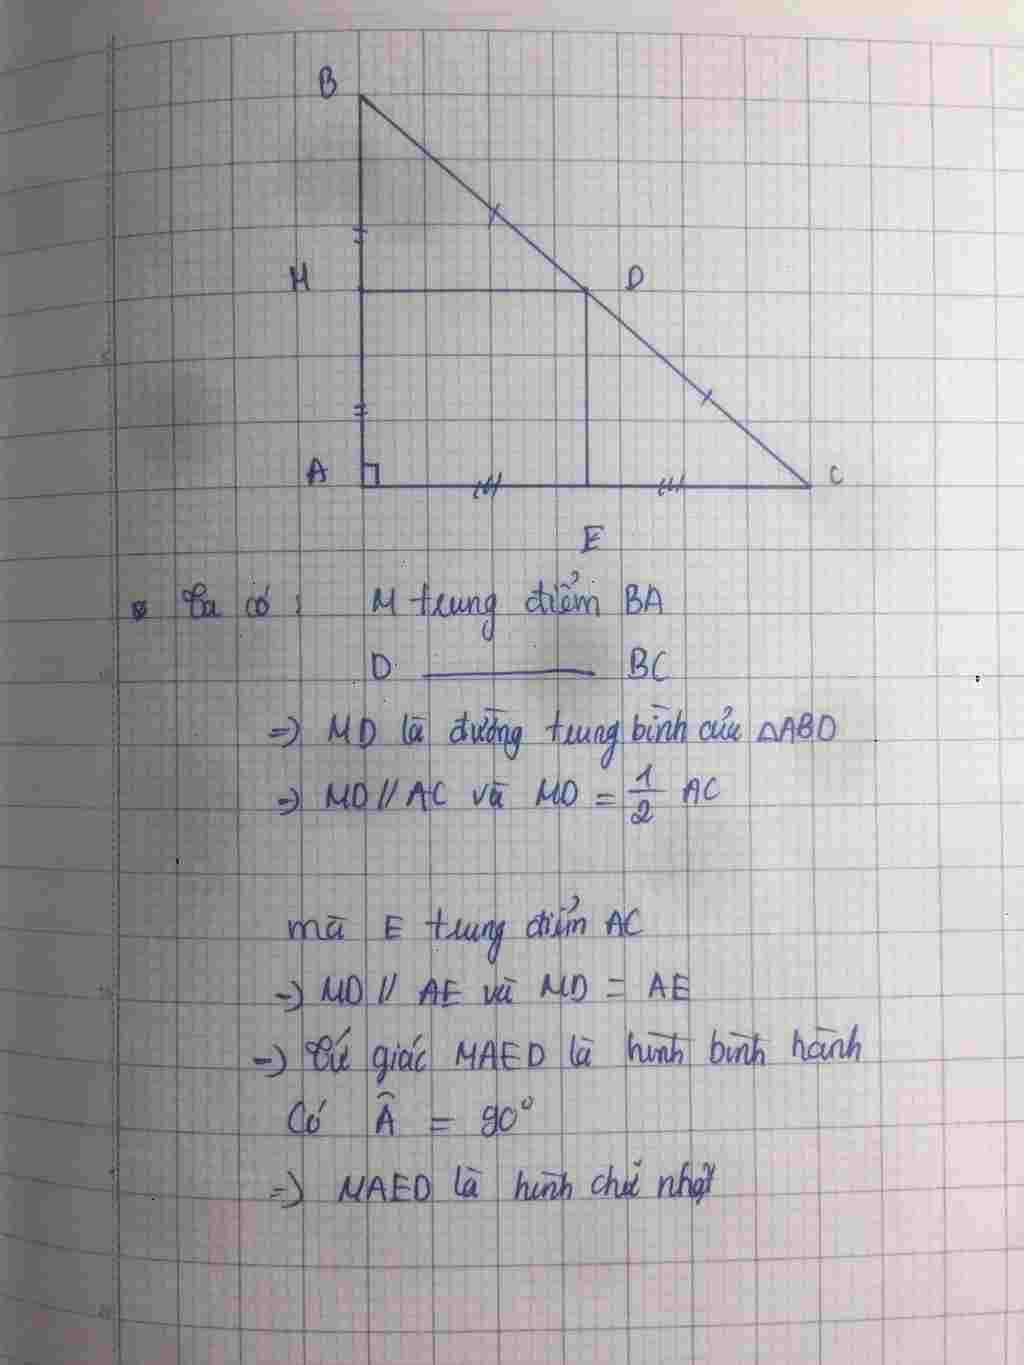 B
M
D
A
C
E
Ta có : M trung điểm BA
D ——— BC
=) MD là đường trung bình của △ABD
=) MD // AC và MD = 1/2 AC
mà E trung điểm AC
=) MD // AE và MD = AE
=) Tứ giác MAED là hình bình hành
Có Â = 90°
=) MAED là hình chữ nhật